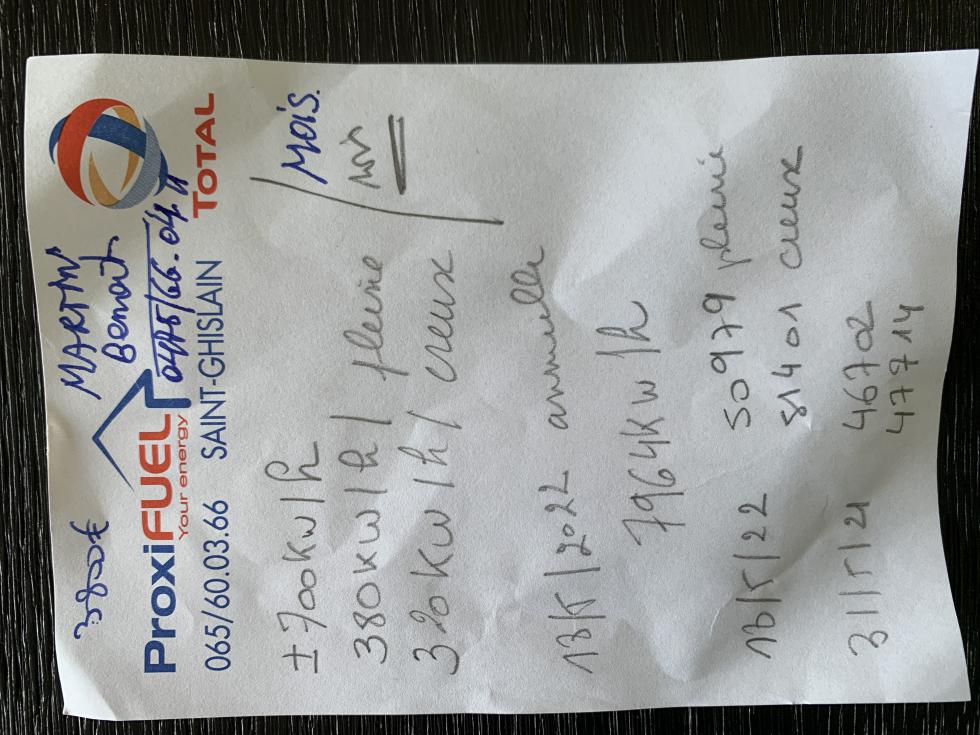 3800€ MARTIN
Benoit
0495/66.04.11
ProxiFUEL
Your energy
TOTAL
065/60.03.66 SAINT-GHISLAIN
± 700 KW/h / Mois.
380 KW/h / pleine
320 KW/h / creux
13/5/2022 annuelle
7964 KW/h
13/5/22 50979 pleine
51401 creux
31/5/21 46702
47714